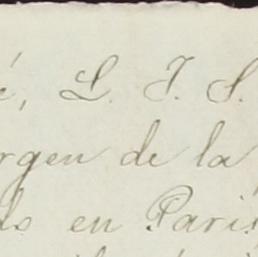 é, L. J. S.
rgen de la
ds en Paris